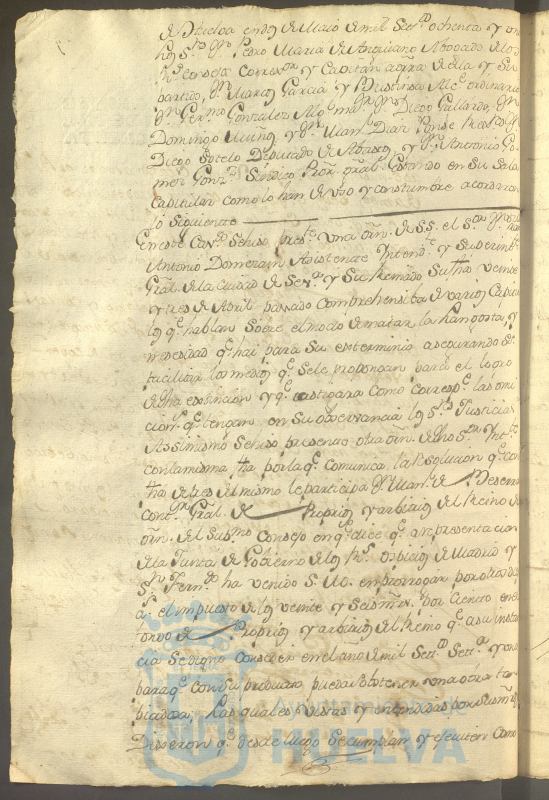 de Huelva en dos de Maio de mil Set.s ochenta y un
los S.res D.n Pedro Maria de Anguiano Abogado de los
R.s Consejos Correx.or y Capitan a gra de ella y Su
partido, D.n Marcos Garcia y Alc.e ordinario
D.n Ger.mo Gonzalez Alg.l ma.r D.n Diego Gallardo, D.n
Domingo Muñiz y D.n Man.l Dian Ponse Rex.s D.n
Diego Sotelo Diputado de Abasto, y D.n Antonio Go
mez Gonz.z Sindico Pror. gral. Estando en Su Sala
Capitular como lo han de uso y constumbre acordaron
lo Siguiente
En este Cav.do Se hiso pres.te una orn. de S.S. el S.or D.n
Antonio Domezain Asistente Intend.te y Superint.te
Gral. de la ciudad de Sev.a y Su Reinado Su fha veinte
y tres de Abril passado comprehensiba de varios Capitu
los q.e hablan Sobre el modo de matar la Langosta, y
nesesidad q.e hai para Su exterminio asegurando
facilitar los medios q.e Se le propongan para el logro
de dha extincion y q.e castigara como corresp.e las omi
cion.s q.e tengan en Su observancia los S.res Justicias
Assimismo Se hiso presente otra orn. de dho S.or Int.te
con la misma fha por la q.e comunica la Resolucion q.e con
fha de tres del mismo le participa D.n Man.l de Becerra
Cont.or Gral. de Propios y arbitrios del Reino de
orn. del Sup.mo Consejo en q.e dice q.e a representacion
de la Junta de Govierno de los R.s Ospicios de Madrid y
S.n Fern.do ha venido S. M. en prorrogar por otros dos
a.s el impuesto de los veinte y Seis mrs. por ciento en el
fondo de Propios y arbitrios del Reino q.e a su instan
cia Se digno Conseder en el año de mil Set.s Set.ta y uno
para q.e con Su producto pueda Sostener una obra tan
piadosa; Las quales, vistas y entendidas por Sus mrds.
Dixeron q.e desde luego Se cumplan y executen como
Ayuntamiento de
HUELVA